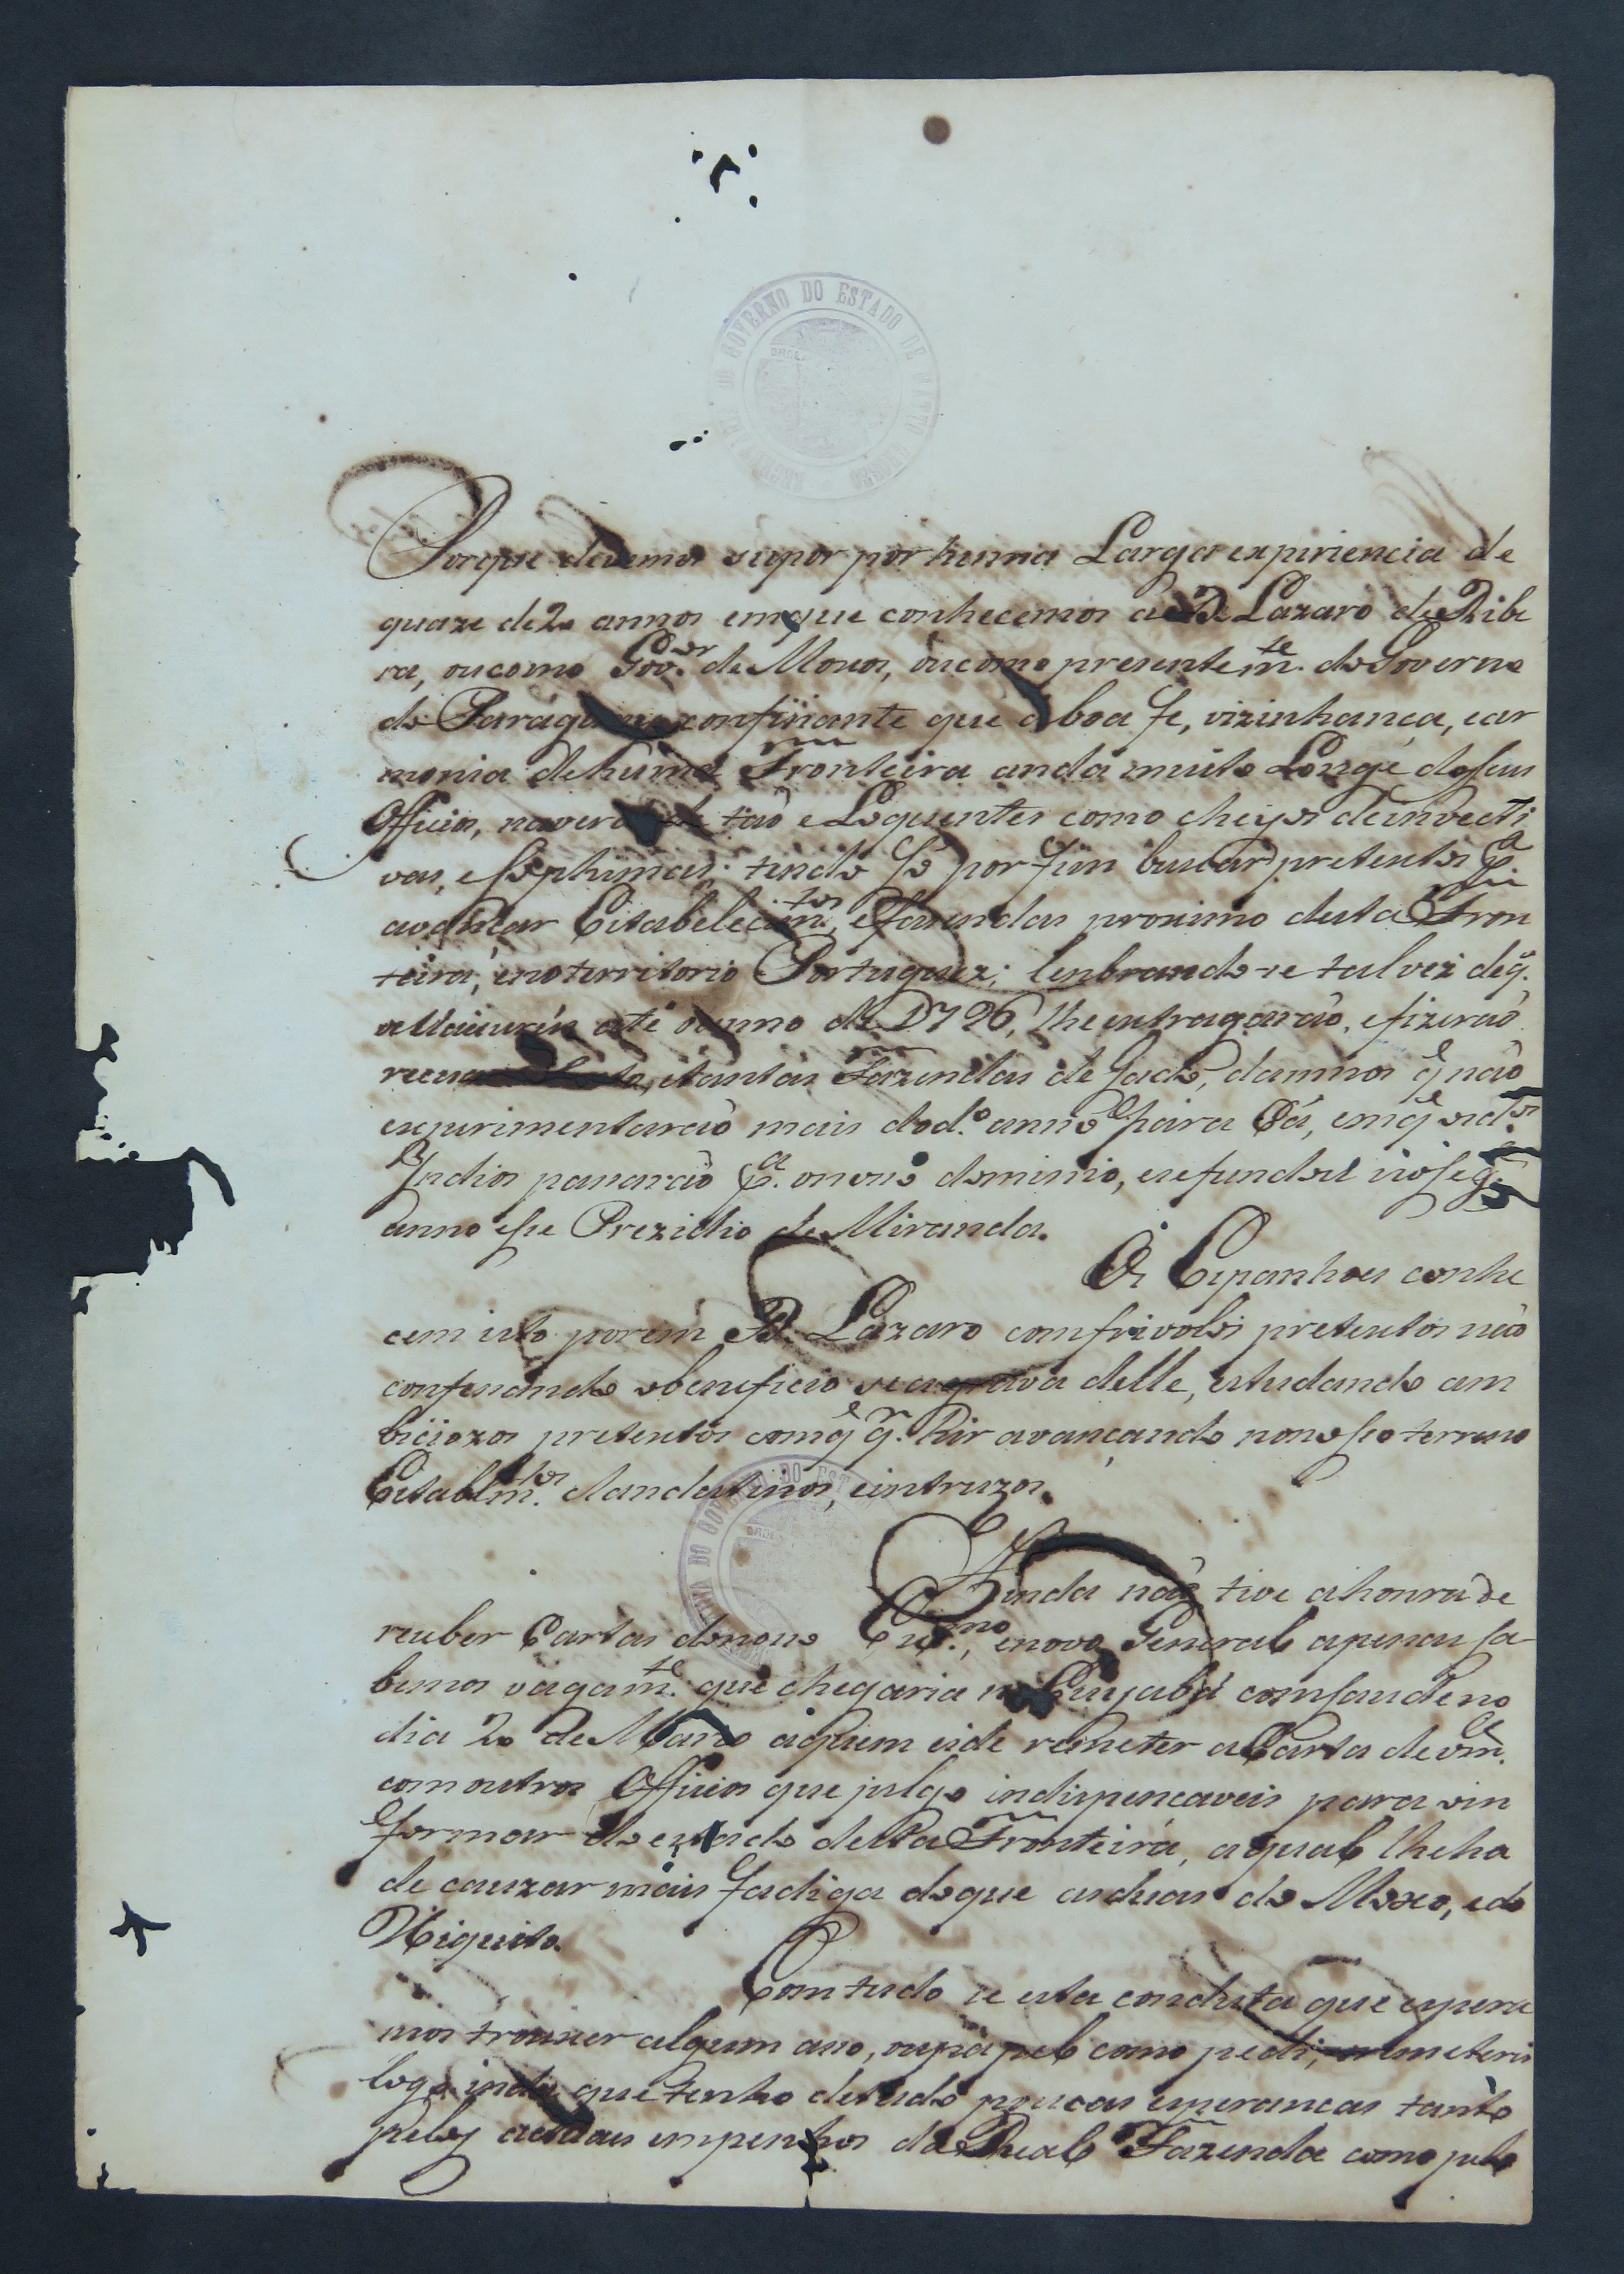 SECRETARIA DO GOVERNO DO ESTADO DE MATTO GROSSO
Porque devemos supor por huma Larga expiriencia de
quaze de 20 annos em que conhecemos a D. Lazaro de Ribe
ra, ou como Gov.or de Moxos, ou como presentem.te do Governo
do Paraguay confinante que a boa fe, vizinhança, e ar
monia de huma Fronteira anda muito Longe dos seus
Officios, na verd.e tão eLoquentes como cheyos de invecti
vas, e sophismas: tendo só por fim buscar pretextos p.a
avançar Estabelecim.tos, e fazendas proximo desta Fron
teira, e no territorio Portuguez; lenbrando-se talvez de q.
os Uaicurús até o anno de 1796, lhe estragarão, e fizerão
recuar, e tantas Fazendas de Gado, damnos q̃ não
experimentarão mais do d.o anno para Cá, em q̃ os d.os
Yndios passarão p.a o nosso dominio, e se fundou no seg.
anno esse Prezidio de Miranda.
Os Espanhoes conhe
cem isto porem D. Lazaro com frivolos pretextos não
confessando o beneficio se agrava delle, estudando am
biciozos pretextos com q̃ q.r hir avançando no nosso terreno
Establm.tos clandestinos, e intruzos.
Ainda não tive a honra de
receber Cartas do nosso Ex.mo, e novo General apenas sa-
bemos vagam.te que chegaria no Cuyabá com saude no
dia 20 de Março a quem eide remeter a Carta de vm.ce
com outros Officios que julgo indispencaveis para o in
formar do estado desta Fronteira, a qual lhe ha
de cauzar mais fadiga do que as duas do Moxo, e do
Xiquito.
Com tudo se esta conducta que espera
mos trouxer algum aso, ou papel como pedi, remeterei
logo inda que tenho de tudo poucas esperancas tanto
pelos actuaes empenhos da Real Fazenda como pelo
SECRETARIA DO GOVERNO DO EST